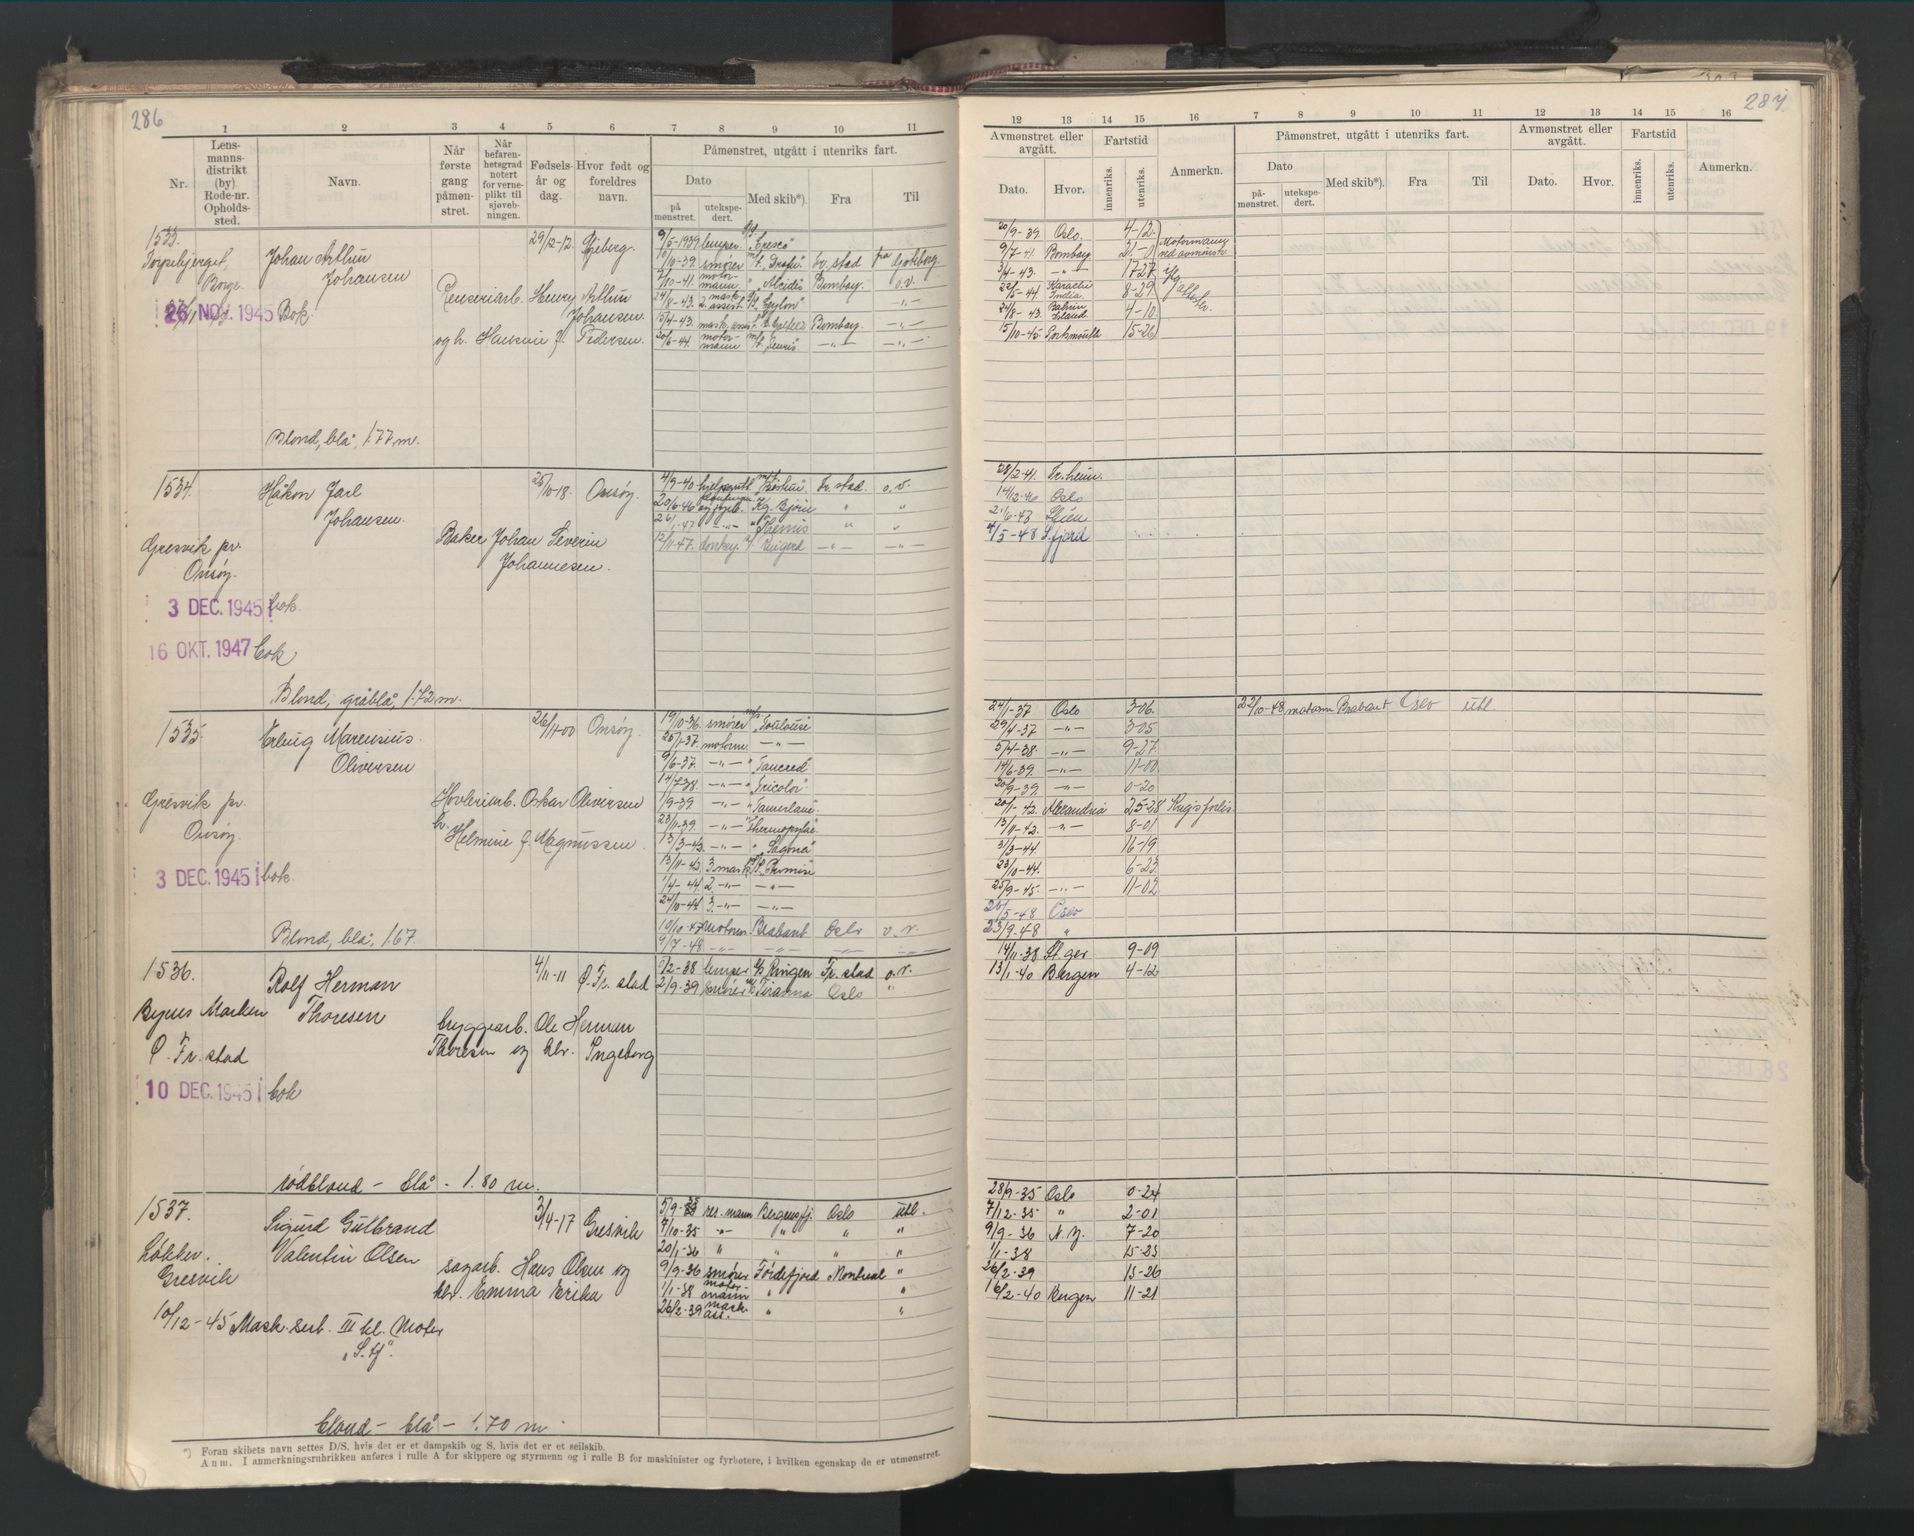 286
1 2 3 4 5 6 7 8 9 10 11
Nr.
Lens-
manns-
distrikt
(by)
Rode-nr.
Opholds-
sted.
Navn.
Når
første
gang
påmøn-
stret.
Når
befaren-
hetsgrad
notert
for verne-
plikt til
sjøveb-
ningen.
Fødsels-
år og
dag.
Hvor født og
foreldres
navn.
Påmønstret, utgått i utenriks fart.
Dato
på
mønstret.
utekspe-
dert.
Med skib*).
Fra
Til
1533.
Torpebjerget,
Borge.
Johan Arthur
Johansen
29/12-12. Skjeberg.
26 NOV. 1945 Bok.
Henry Arthur
Johansen
og h. Pedersen.
9/5-1939 lemper
10/10-39. smører Fr. stad fra Gøteborg.
7/10-41. motor-
mann "Alcides" Bombay. o.v.
24/8-43. 2. mask.
assist. "Ceylon" -"-
15/4-43. mask. assist. Bombay. -"-
20/6-44. motor-
mann -"- -"-
Blond, blå, 1.77 m.
1534.
Håkon Jarl
Johansen.
25/10-18. Onsøy.
Gresvik pr.
Onsøy.
Baker Johan Severin
Johannesen.
4/9-40 Fr. stad. o.v.
20/6-46 Kg. Bjørn " "
26/1-47 -"- "Themis " "
12/11-47. donkey. Ringerd -"- -"-
3 DEC. 1945 bok.
16 OKT. 1947 bok
Blond, gråblå, 1.72 m.
1535.
Erling Marensius
Oliversen
26/11-00 Onsøy.
Gresvik pr.
Onsøy.
Høvleriarb. Oskar Oliversen
h.
Helmine f. Magnussen.
3 DEC. 1945 bok.
19/10-36. smører "Toulouse
25/1-37. motorm. -"-
9/6-37. -"- "Tancred"
14/7-38. -"- "Tricolor"
1/9-39. -"- "Tamerlane"
23/11-39. -"- "Thermopylæ"
13/3-42. -"- "Sagona"
13/11-42. 3 mask.
1/4-44. 2. -"- -"-
24/10-44. 3. -"- -"-
10/10-47 motorm. Brabant Oslo o.v.
9/7-48. -"- -"- -"- -"-
Blond, blå, 1.67.
1536.
Rolf Herman
Thoresen
4/11-11 Ø. Fr. stad
Bynes Marken
Ø. Fr. stad
bryggearb. Ole Herman
Thoresen og h̄lr. Ingeborg
/2-38 lemper Ringen Fr. stad o.v.
2/9-39 smører Tiranna Oslo "
10 DEC. 1945 bok
rødblond - blå - 1.80 m.
1537.
Sigurd Gulbrand
Valentin Olsen
3/4-17 Gresvik
Løkker.
Gresvik
sagarb. Hans Olsen og
hlr. Emma Erika
5/9-35 res. mann Bergensfj. Oslo utl.
7/10-35 -"- " " "
20/1-36 " " " "
9/9-36 smører Fordefjord Montreal "
1/1-38 motor-
mann " "
26/2-39 mask.
ass. " "
10/12-45 Mask. sert. III kl. Motor
"S. Fj".
blond - blå - 1.70 m.
*) Foran skibets navn settes D/S, hvis det er et dampskib og S, hvis det er et seilskib.
Anm. I anmerkningsrubrikken anføres i rulle A for skippere og styrmenn og i rulle B for maskinister og fyrbøtere, i hvilken egenskap de er utmønstret.
287
12 13 14 15 16 7 8 9 10 11 12 13 14 15 16
Avmønstret eller
avgått.
Dato.
Hvor.
Fartstid
innenriks.
utenriks.
Anmerkn.
Påmønstret, utgått i utenriks fart.
Dato
på-
mønstret.
utekspe-
dert.
Med skib*).
Fra
Til
Avmønstret eller
avgått.
Dato.
Hvor.
Fartstid
innenriks.
utenriks.
Anmerkn.
20/9-39. Oslo. 4-12.
9/7-41. Bombay 21-01 Motormann
ved avmønstr.
3/4-43. -"- 17-27
22/5-44. Karachi
India. 8-29
24/8-43. Bahrin
Island. 4-10
15/10-45. Portsmouth 15-26
28/2-41. Tr. heim.
14/12-46 Oslo
21/6-47 Skien
4/5-48 S. fjord
24/1-37 Oslo 3-06. 22/10-48 motorm Brabant Oslo utl.
29/4-37 -"- 3-05
5/4-38. -"- 9-27.
14/6-39. -"- 11-00.
20/9-39. -"- 0-20
20/1-42. Alexandria 25-28 Krigsforlis
13/11-42. -"- 8-01
31/3-44 16-19
23/10-44. 6-23.
25/9-45. -"- 11-02.
21/5-48 Oslo
23/9-48 "
14/11-38 St. ger 9-09
13/1-40 Bergen 4-12
28/9-35 Oslo 0-24
7/12-35 " 2-01
9/9-36 N.Y. 7-20
1/1-38 15-23
26/2-39 13-26
16/2-40 Bergen 11-21